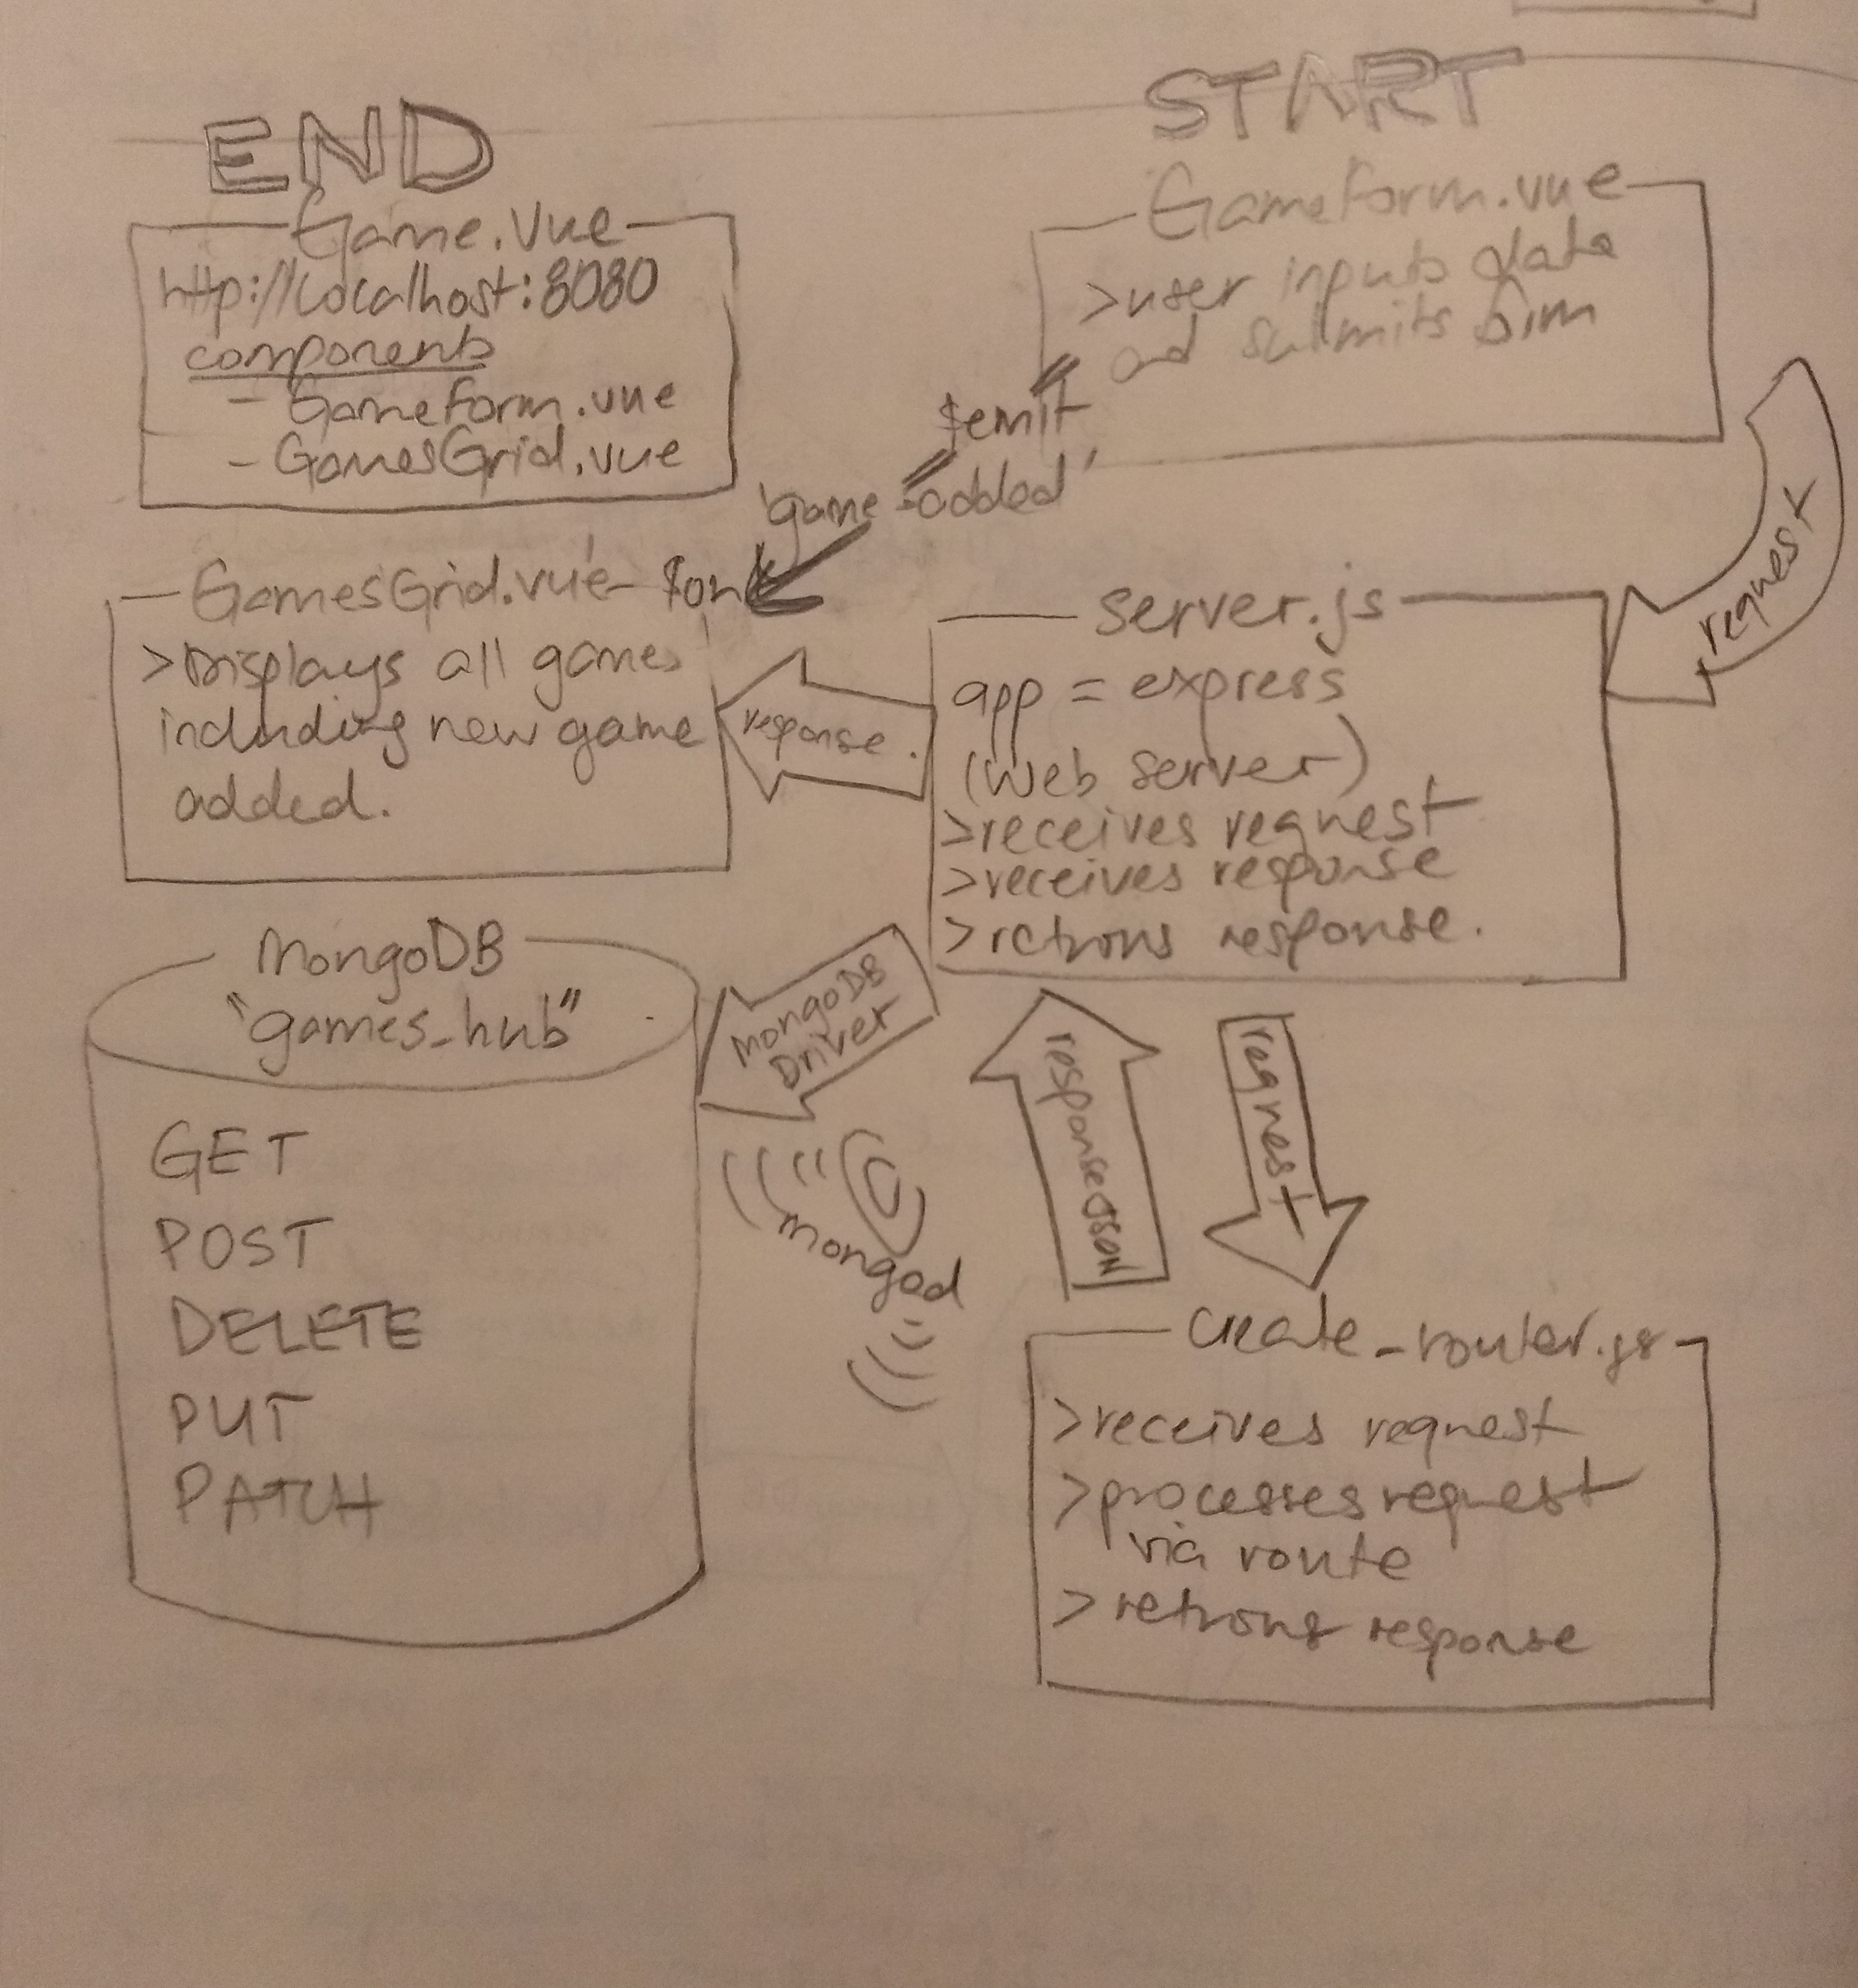 END
Game.vue
http://localhost:8080
components
- GameForm.vue
- GamesGrid.vue
START
GameForm.vue
>user inputs data
and submits form
request
$emit
'game-added'
GamesGrid.vue $on
>Displays all games
including new game
added.
response.
server.js
app = express
(web server)
>receives request
>receives response
>retrons response.
MongoDB
"games_hub"
GET
POST
DELETE
PUT
PATCH
MongoDB
Driver
mongod
response JSON
request
create_router.js
>receives request
>processes request
via route
>retrons response